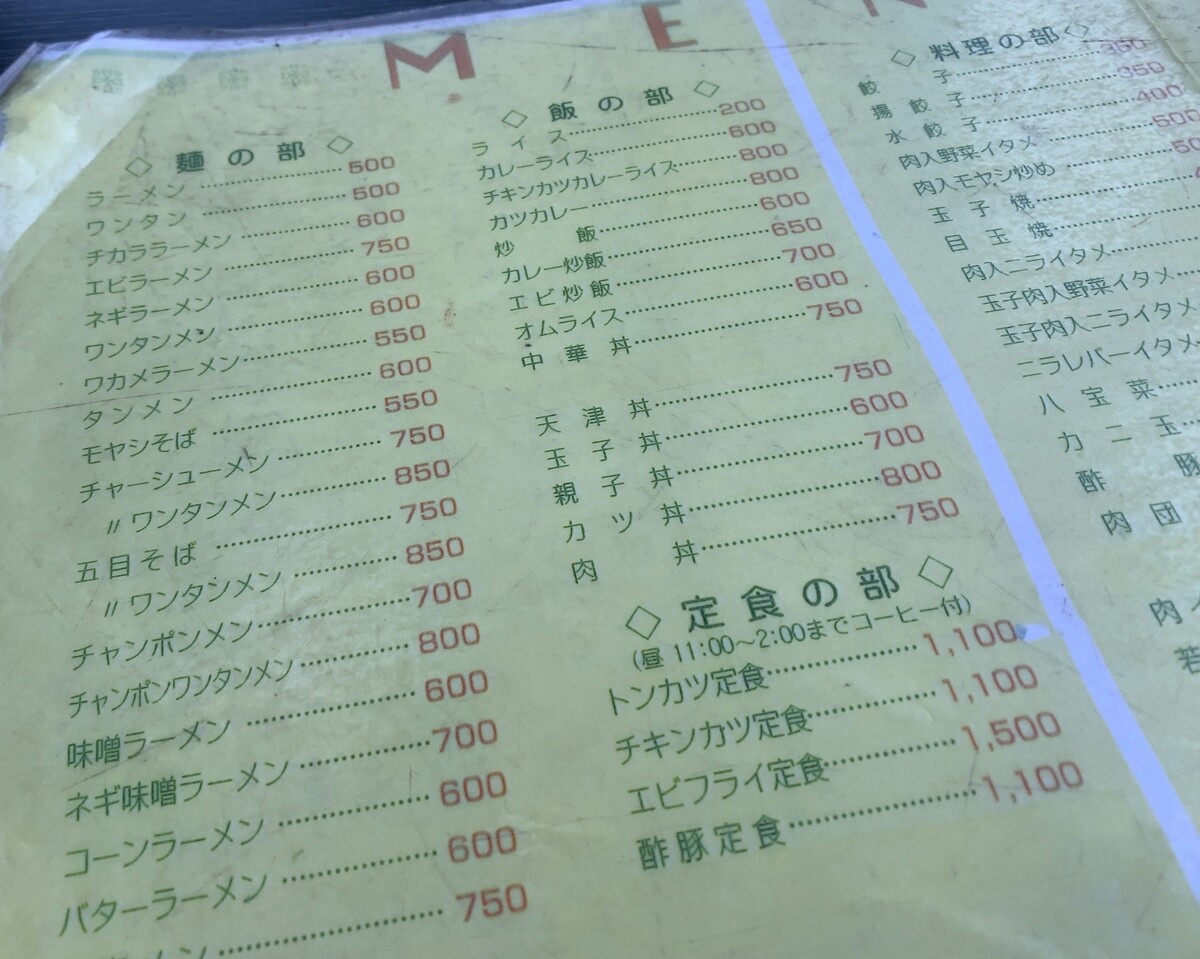 M E N
◇ 麺 の 部 ◇
ラーメン 500
ワンタン 500
チカララーメン 600
エビラーメン 750
ネギラーメン 600
ワンタンメン 600
ワカメラーメン 550
タンメン 600
モヤシそば 550
チャーシューメン 750
〃ワンタンメン 850
五目そば 750
〃ワンタンメン 850
チャンポンメン 700
チャンポンワンタンメン 800
味噌ラーメン 600
ネギ味噌ラーメン 700
コーンラーメン 600
バターラーメン 600
メン 750
◇ 飯 の 部 ◇
ライス 200
カレーライス 600
チキンカツカレーライス 800
カツカレー 800
炒飯 600
カレー炒飯 650
エビ炒飯 700
オムライス 600
中華丼 750
天津丼 750
玉子丼 600
親子丼 700
カツ丼 800
肉丼 750
◇ 定 食 の 部 ◇
(昼 11:00〜2:00までコーヒー付)
トンカツ定食 1,100
チキンカツ定食 1,100
エビフライ定食 1,500
酢豚定食 1,100
◇ 料理の部 ◇
餃子 350
揚餃子 350
水餃子 400
肉入野菜イタメ 500
肉入モヤシ炒め
玉子焼
目玉焼
肉入ニライタメ
玉子肉入野菜イタメ
玉子肉入ニライタメ
ニラレバーイタメ
八宝菜
カニ玉
酢豚
肉団
肉
若